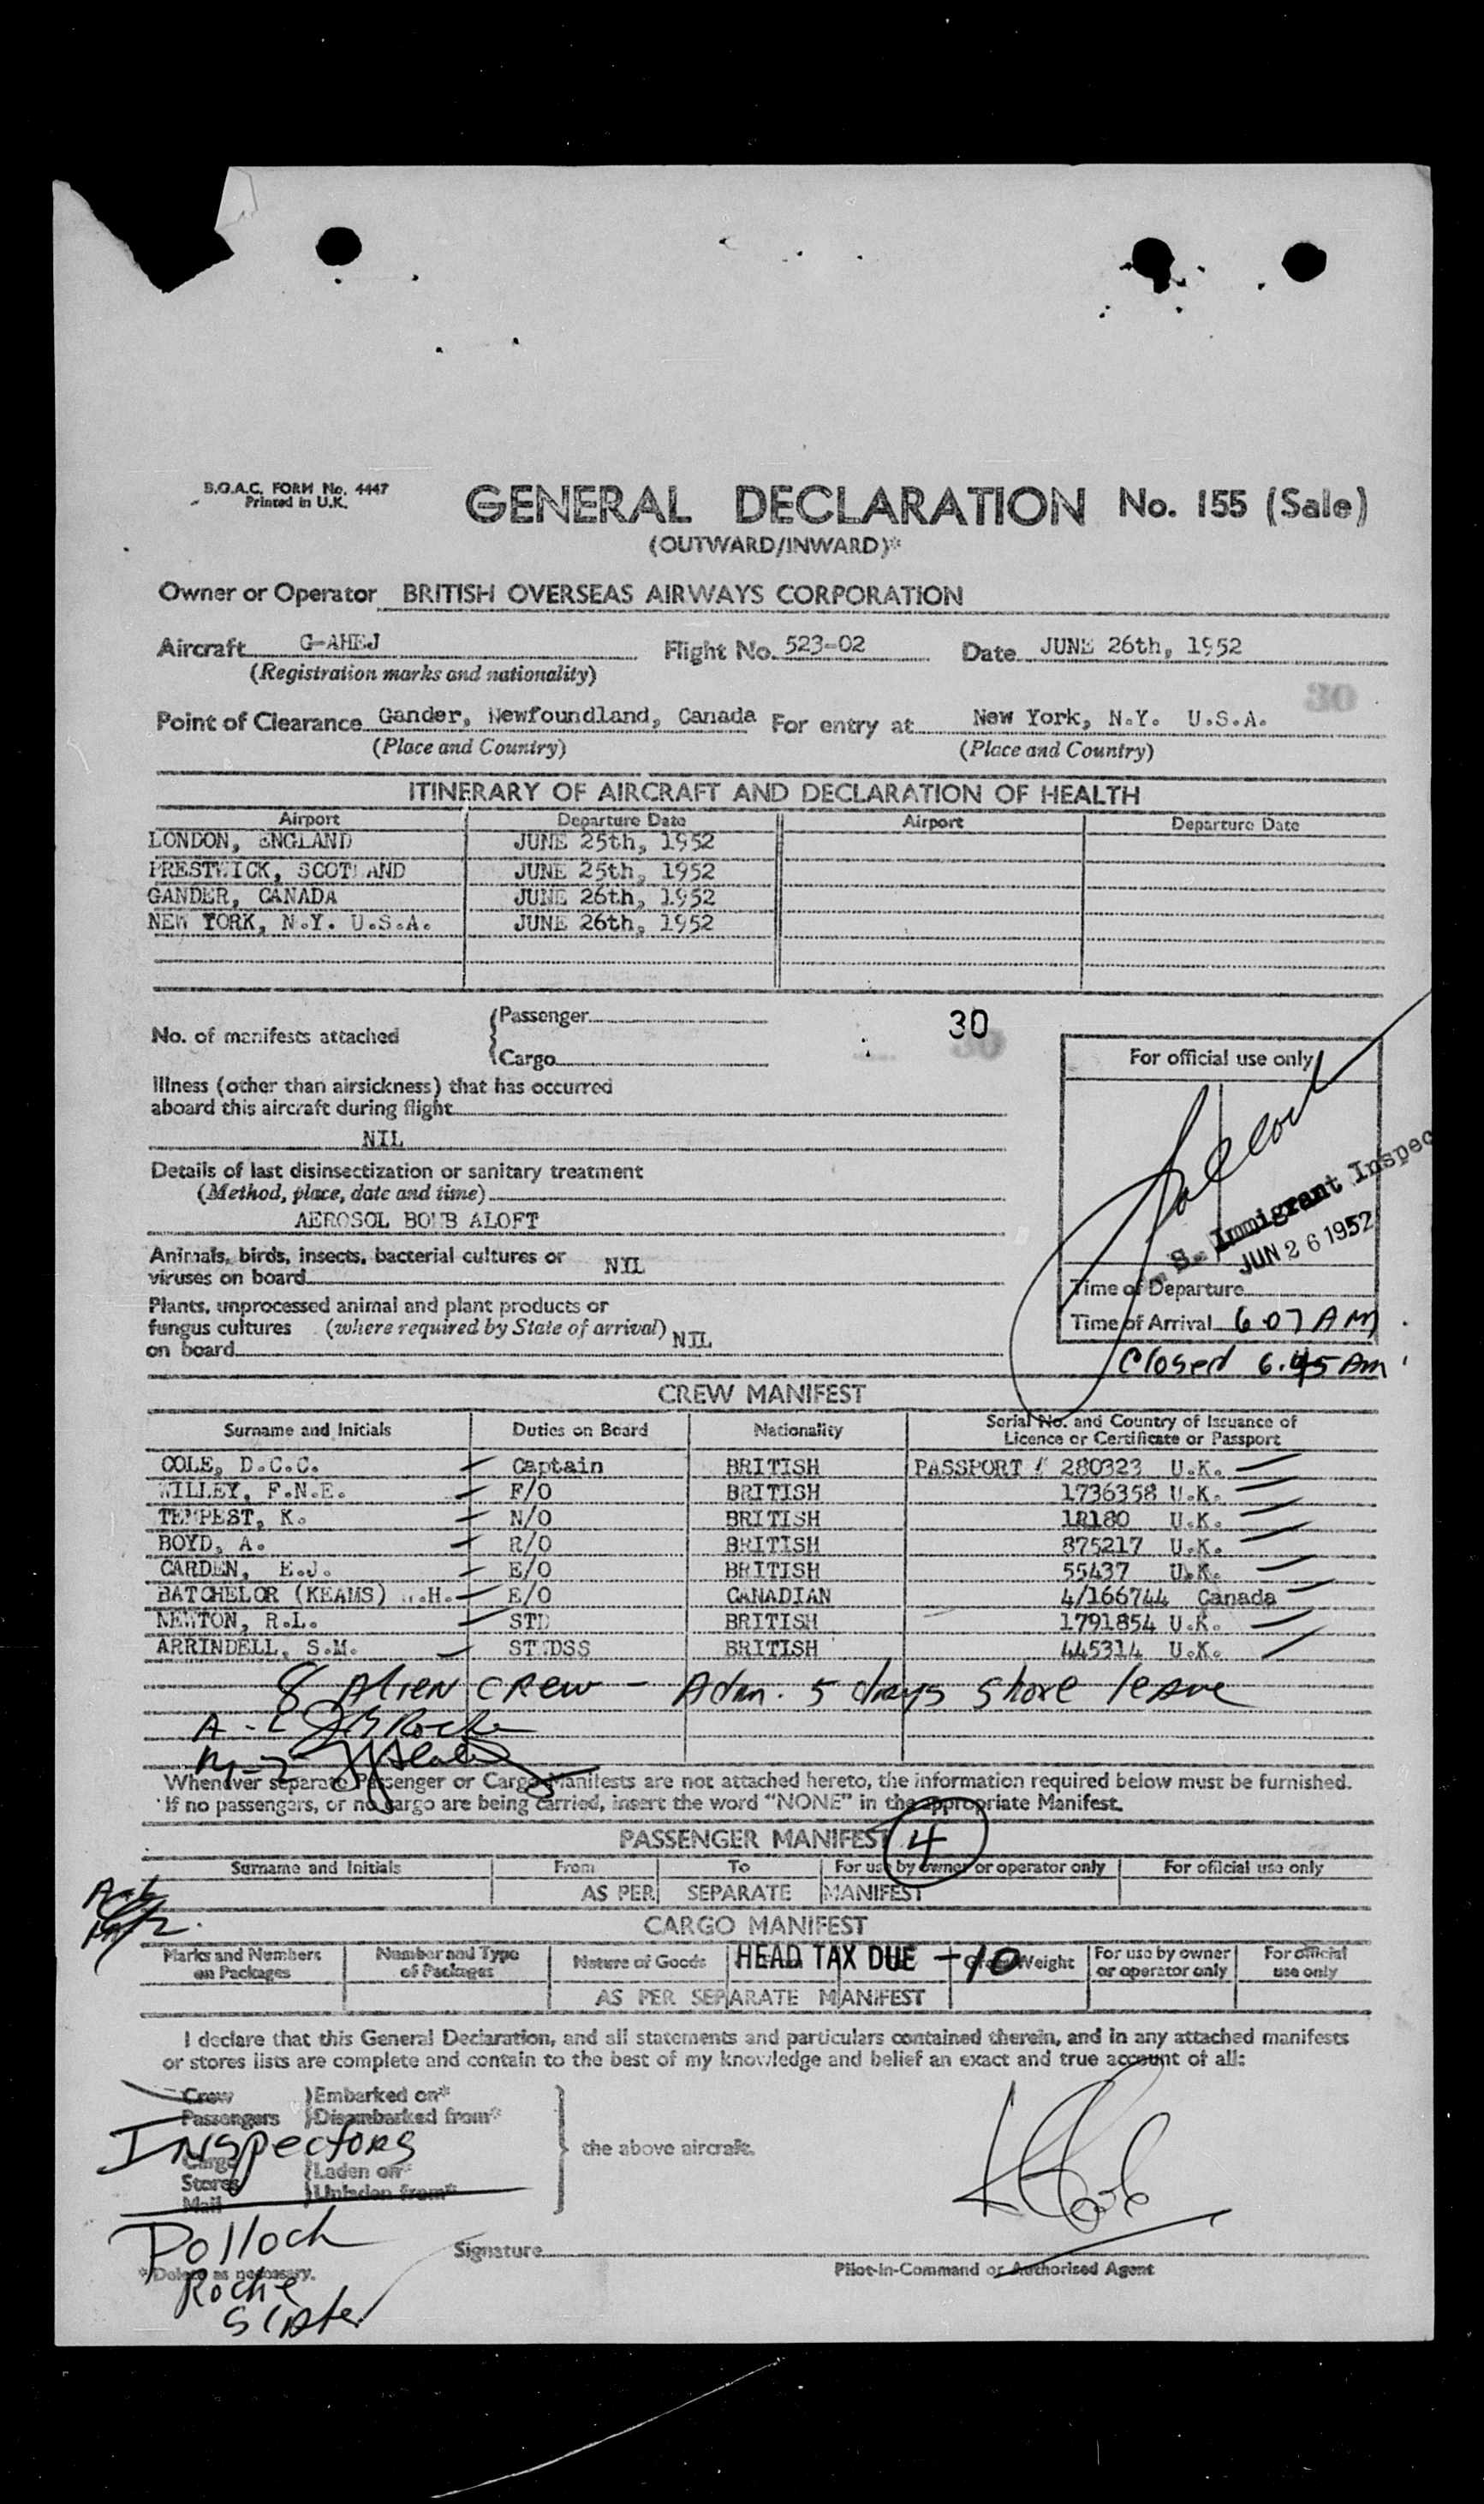 B.O.A.C. FORM No. 4447
Printed in U.K.
GENERAL DECLARATION No. 155 (Sale)
(OUTWARD/INWARD)*
Owner or Operator BRITISH OVERSEAS AIRWAYS CORPORATION
Aircraft G-AHEJ Flight No. 523-02 Date JUNE 26th, 1952
(Registration marks and nationality)
30
Point of Clearance Gander, Newfoundland, Canada For entry at New York, N.Y. U.S.A.
(Place and Country) (Place and Country)
ITINERARY OF AIRCRAFT AND DECLARATION OF HEALTH
Airport Departure Date Airport Departure Date
LONDON, ENGLAND JUNE 25th, 1952
PRESTWICK, SCOTLAND JUNE 25th, 1952
GANDER, CANADA JUNE 26th, 1952
NEW YORK, N.Y. U.S.A. JUNE 26th, 1952
No. of manifests attached
Passenger
Cargo
30
30
For official use only
Illness (other than airsickness) that has occurred
aboard this aircraft during flight
NIL
Details of last disinsectization or sanitary treatment
(Method, place, date and time)
AEROSOL BOMB ALOFT
Pollock
S. Immigrant Inspec
JUN 26 1952
Animals, birds, insects, bacterial cultures or NIL
viruses on board
Plants, unprocessed animal and plant products or
fungus cultures (where required by State of arrival) NIL
on board
Time of Departure
Time of Arrival 6.07 AM
Closed 6.45 Am
CREW MANIFEST
Surname and Initials Duties on Board Nationality Serial No. and Country of Issuance of
Licence or Certificate or Passport
COLE, D.C.C. Captain BRITISH PASSPORT # 280323 U.K.
WILLEY, F.N.E. F/O BRITISH 1736358 U.K.
TEMPEST, K. N/O BRITISH 12180 U.K.
BOYD, A. R/O BRITISH 875217 U.K.
CARDEN, E.J. E/O BRITISH 55437 U.K.
BATCHELOR (KEAMS) .H. E/O CANADIAN 4/166744 Canada
NEWTON, R.L. STD BRITISH 1791854 U.K.
ARRINDELL, S.M. STWDSS BRITISH 445314 U.K.
8 Alien crew - Adm. 5 days shore leave
A-L Roche
M-2
Whenever separate Passenger or Cargo Manifests are not attached hereto, the information required below must be furnished.
If no passengers, or no cargo are being carried, insert the word "NONE" in the appropriate Manifest.
PASSENGER MANIFEST 4
Surname and Initials From To For use by owner or operator only For official use only
AS PER SEPARATE MANIFEST
CARGO MANIFEST
Marks and Numbers on Packages Number and Type of Packages Nature of Goods HEAD TAX DUE - 10 Weight For use by owner or operator only For official use only
AS PER SEPARATE MANIFEST
I declare that this General Declaration, and all statements and particulars contained therein, and in any attached manifests
or stores lists are complete and contain to the best of my knowledge and belief an exact and true account of all:
Crew Embarked on*
Passengers Disembarked from*
Inspectors
the above aircraft.
Cargo
Stores Laden on*
Mail Unladen from*
Pollock
Signature
Pilot-in-Command or Authorised Agent
*Delete as necessary.
Roche
Slater